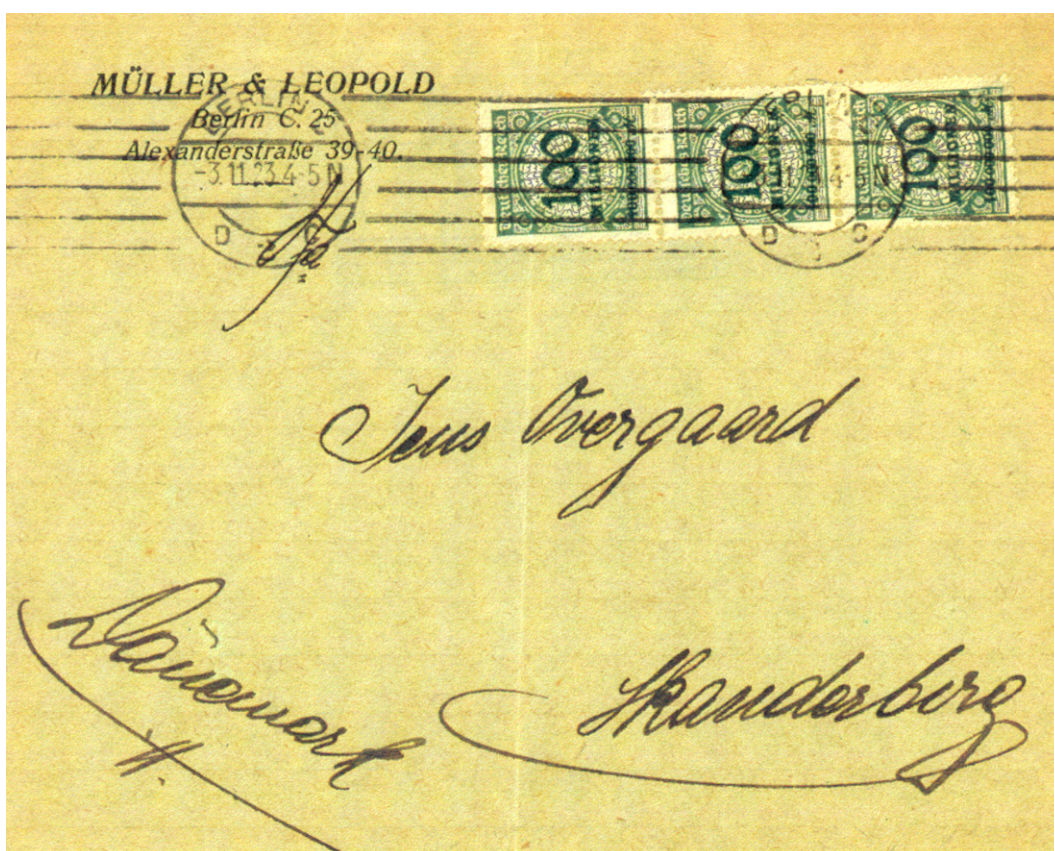 MÜLLER & LEOPOLD
Berlin C. 25
Alexanderstraße 39-40.
BERLIN
-3.11.23.4-5 N
C
Deutsches Reich
100
MILLIONEN
100
MILLIONEN
100
MILLIONEN
Jens Overgaard
Dänemark
Skanderborg